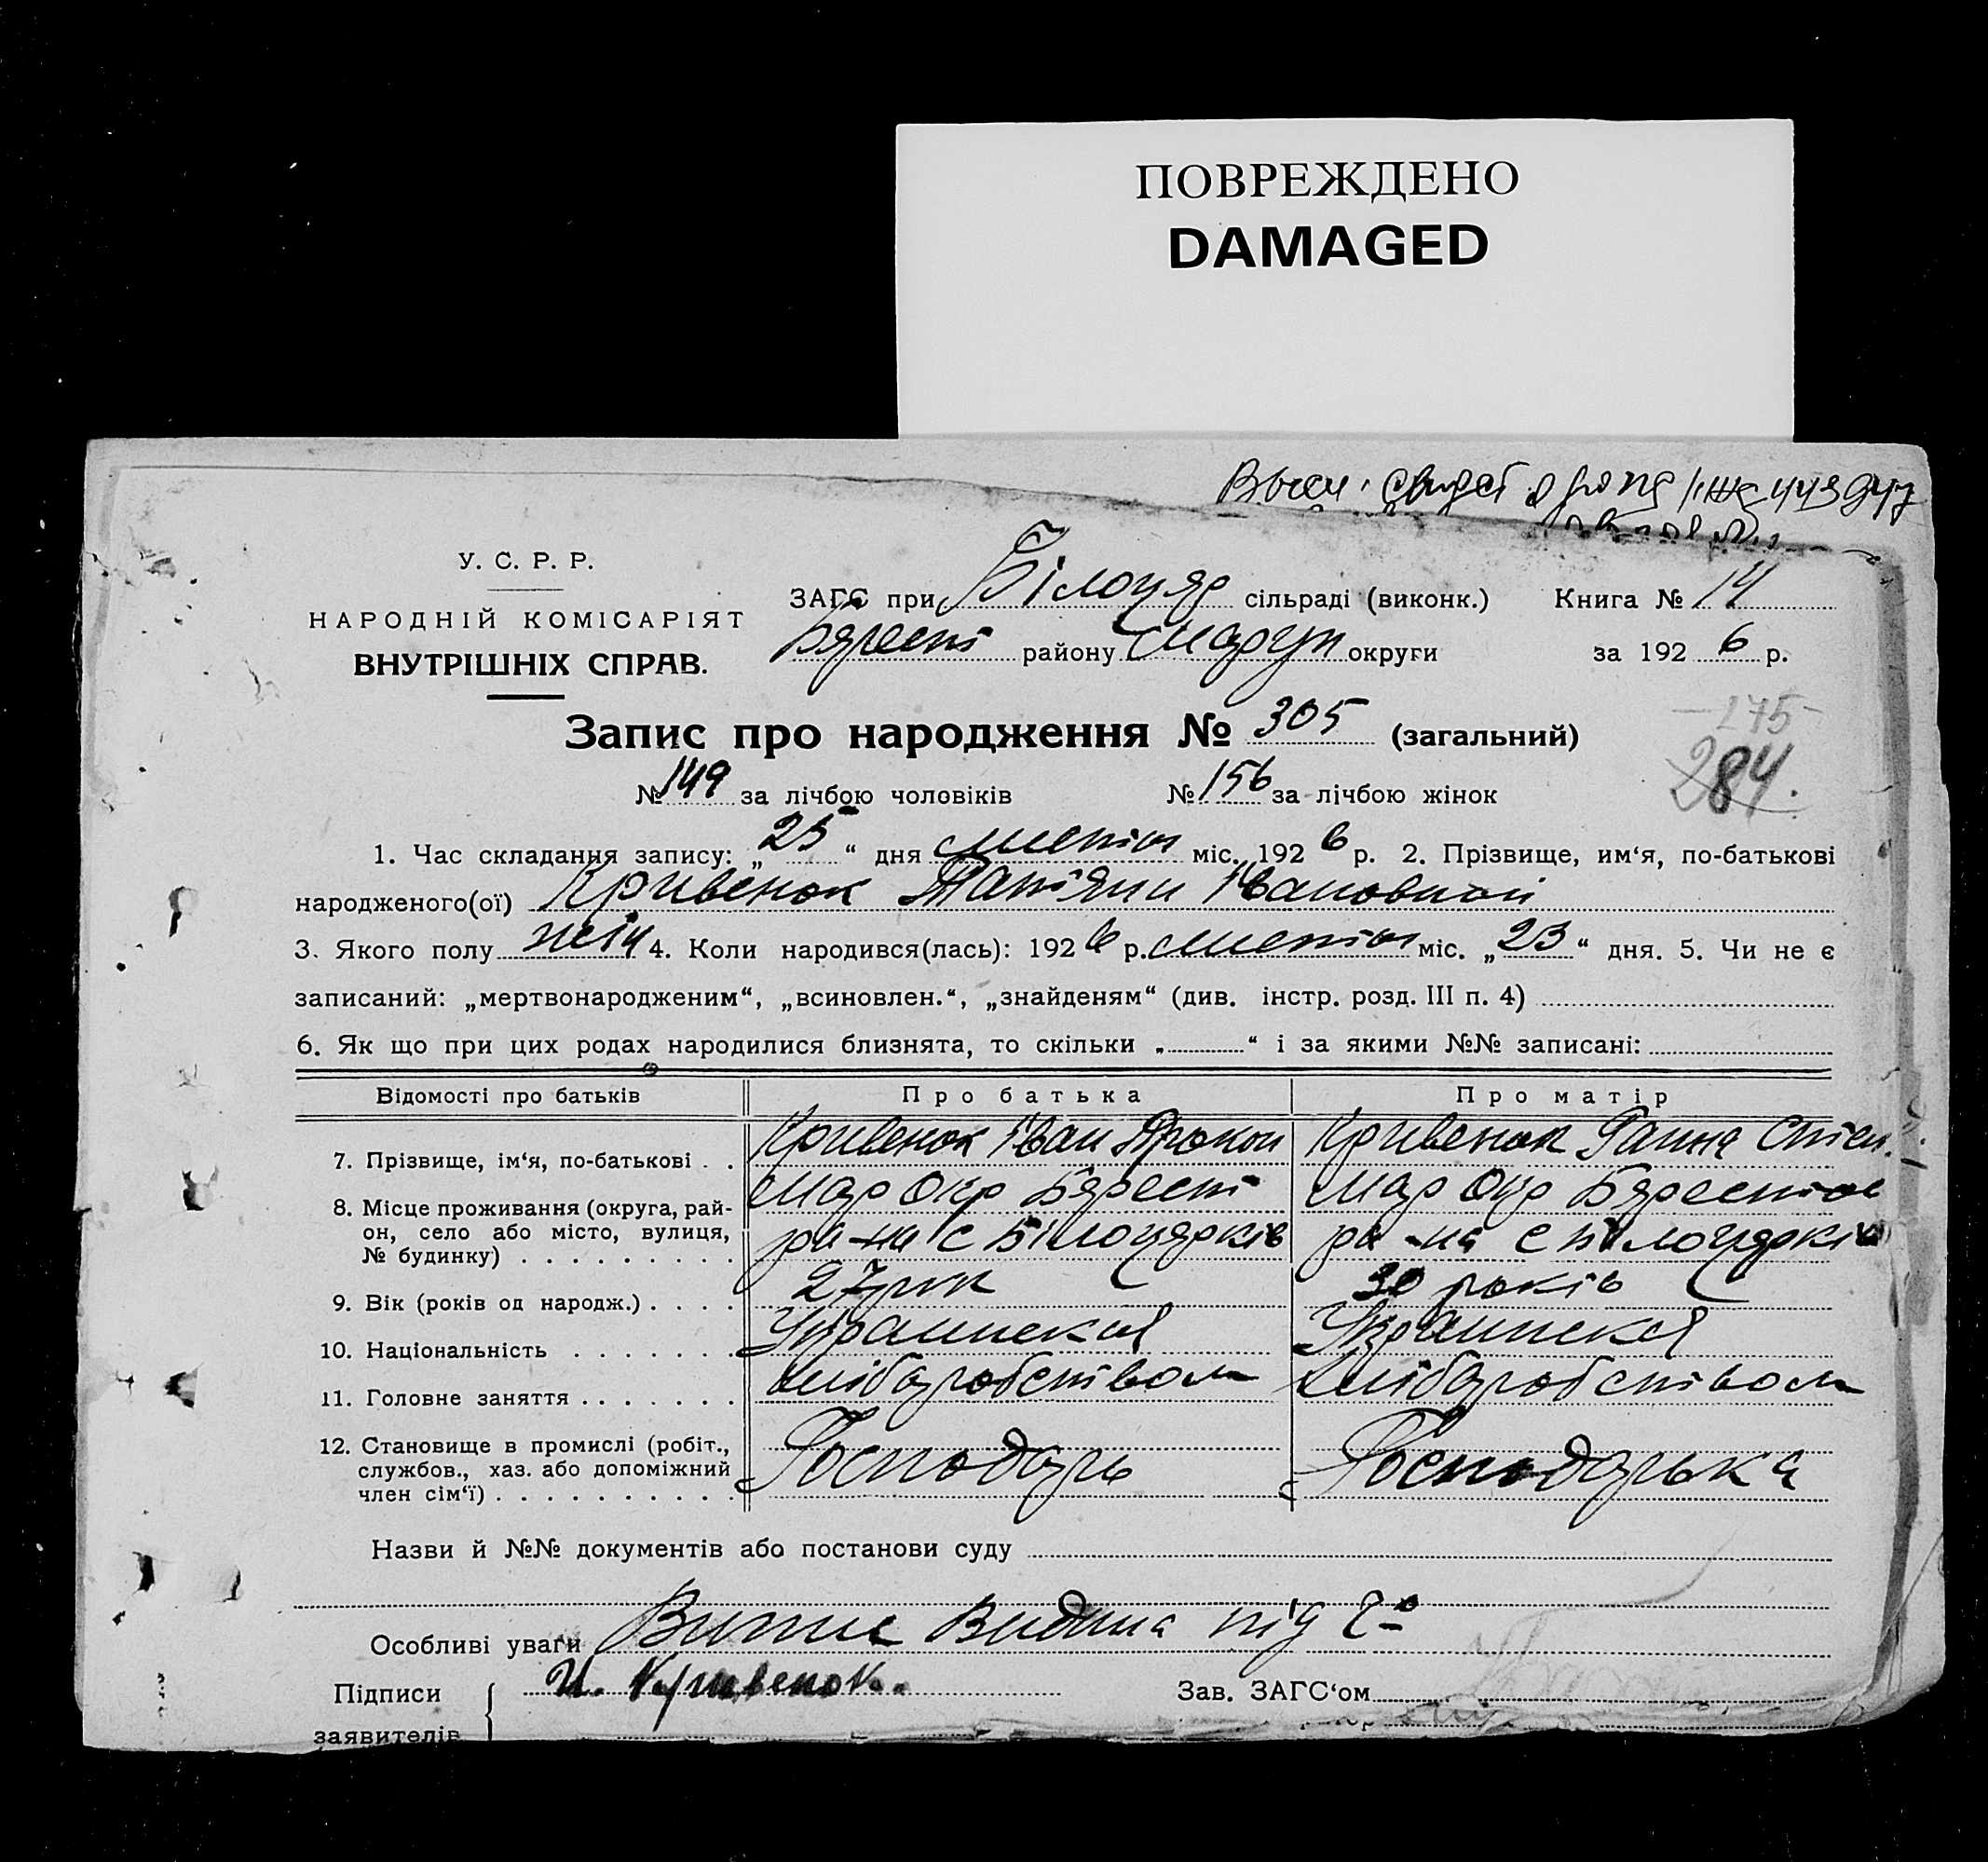 ПОВРЕЖДЕНО
DAMAGED
У. С. Р. Р.
НАРОДНІЙ КОМІСАРІЯТ
ВНУТРІШНІХ СПРАВ.
ЗАГС при Білоцяр сільраді (виконк.) Книга № 14
Бярест району Марґуп округи за 192 6 р.
Запис про народження № 305 (загальний)
- 175 -
284.
№ 149 за лічбою чоловіків № 156 за лічбою жінок
1. Час складання запису: „ 25 “ дня міс. 192 6 р. 2. Прізвище, им‘я, по-батькові
народженого(ої) Кривенок Татяни Івановной
3. Якого полу жін 4. Коли народився(лась): 192 6 р. міс. „ 23 “ дня. 5. Чи не є
записаний: „мертвонародженим“, „всиновлен.“, „знайденям“ (див. інстр. розд. III п. 4)
6. Як що при цих родах народилися близнята, то скільки „ “ і за якими №№ записані:
Відомості про батьків Про батька Про матір
7. Прізвище, ім‘я, по-батькові . . Кривенок Іван Прокоп Кривенок Ганна Степ.
8. Місце проживання (округа, рай- Мар Окр Бярест Мар Окр Бярестов
он, село або місто, вулиця, ра-на с Білоцярків ра-на с Білоцярків
№ будинку) . . . . . . . . .
9. Вік (років од народж.) . . . . 27 рок 30 років
10. Національність . . . . . . . Украинская Украинская
11. Головне заняття . . . . . . . хлібаробством хлібаробством
12. Становище в промислі (робіт., Господарь Господарька
службов., хаз. або допоміжний
член сім‘ї) . . . . . . . . . .
Назви й №№ документів або постанови суду
Особливі уваги Випис Видина під
Підписи И. Кривенок. Зав. ЗАГС‘ом
заявителів